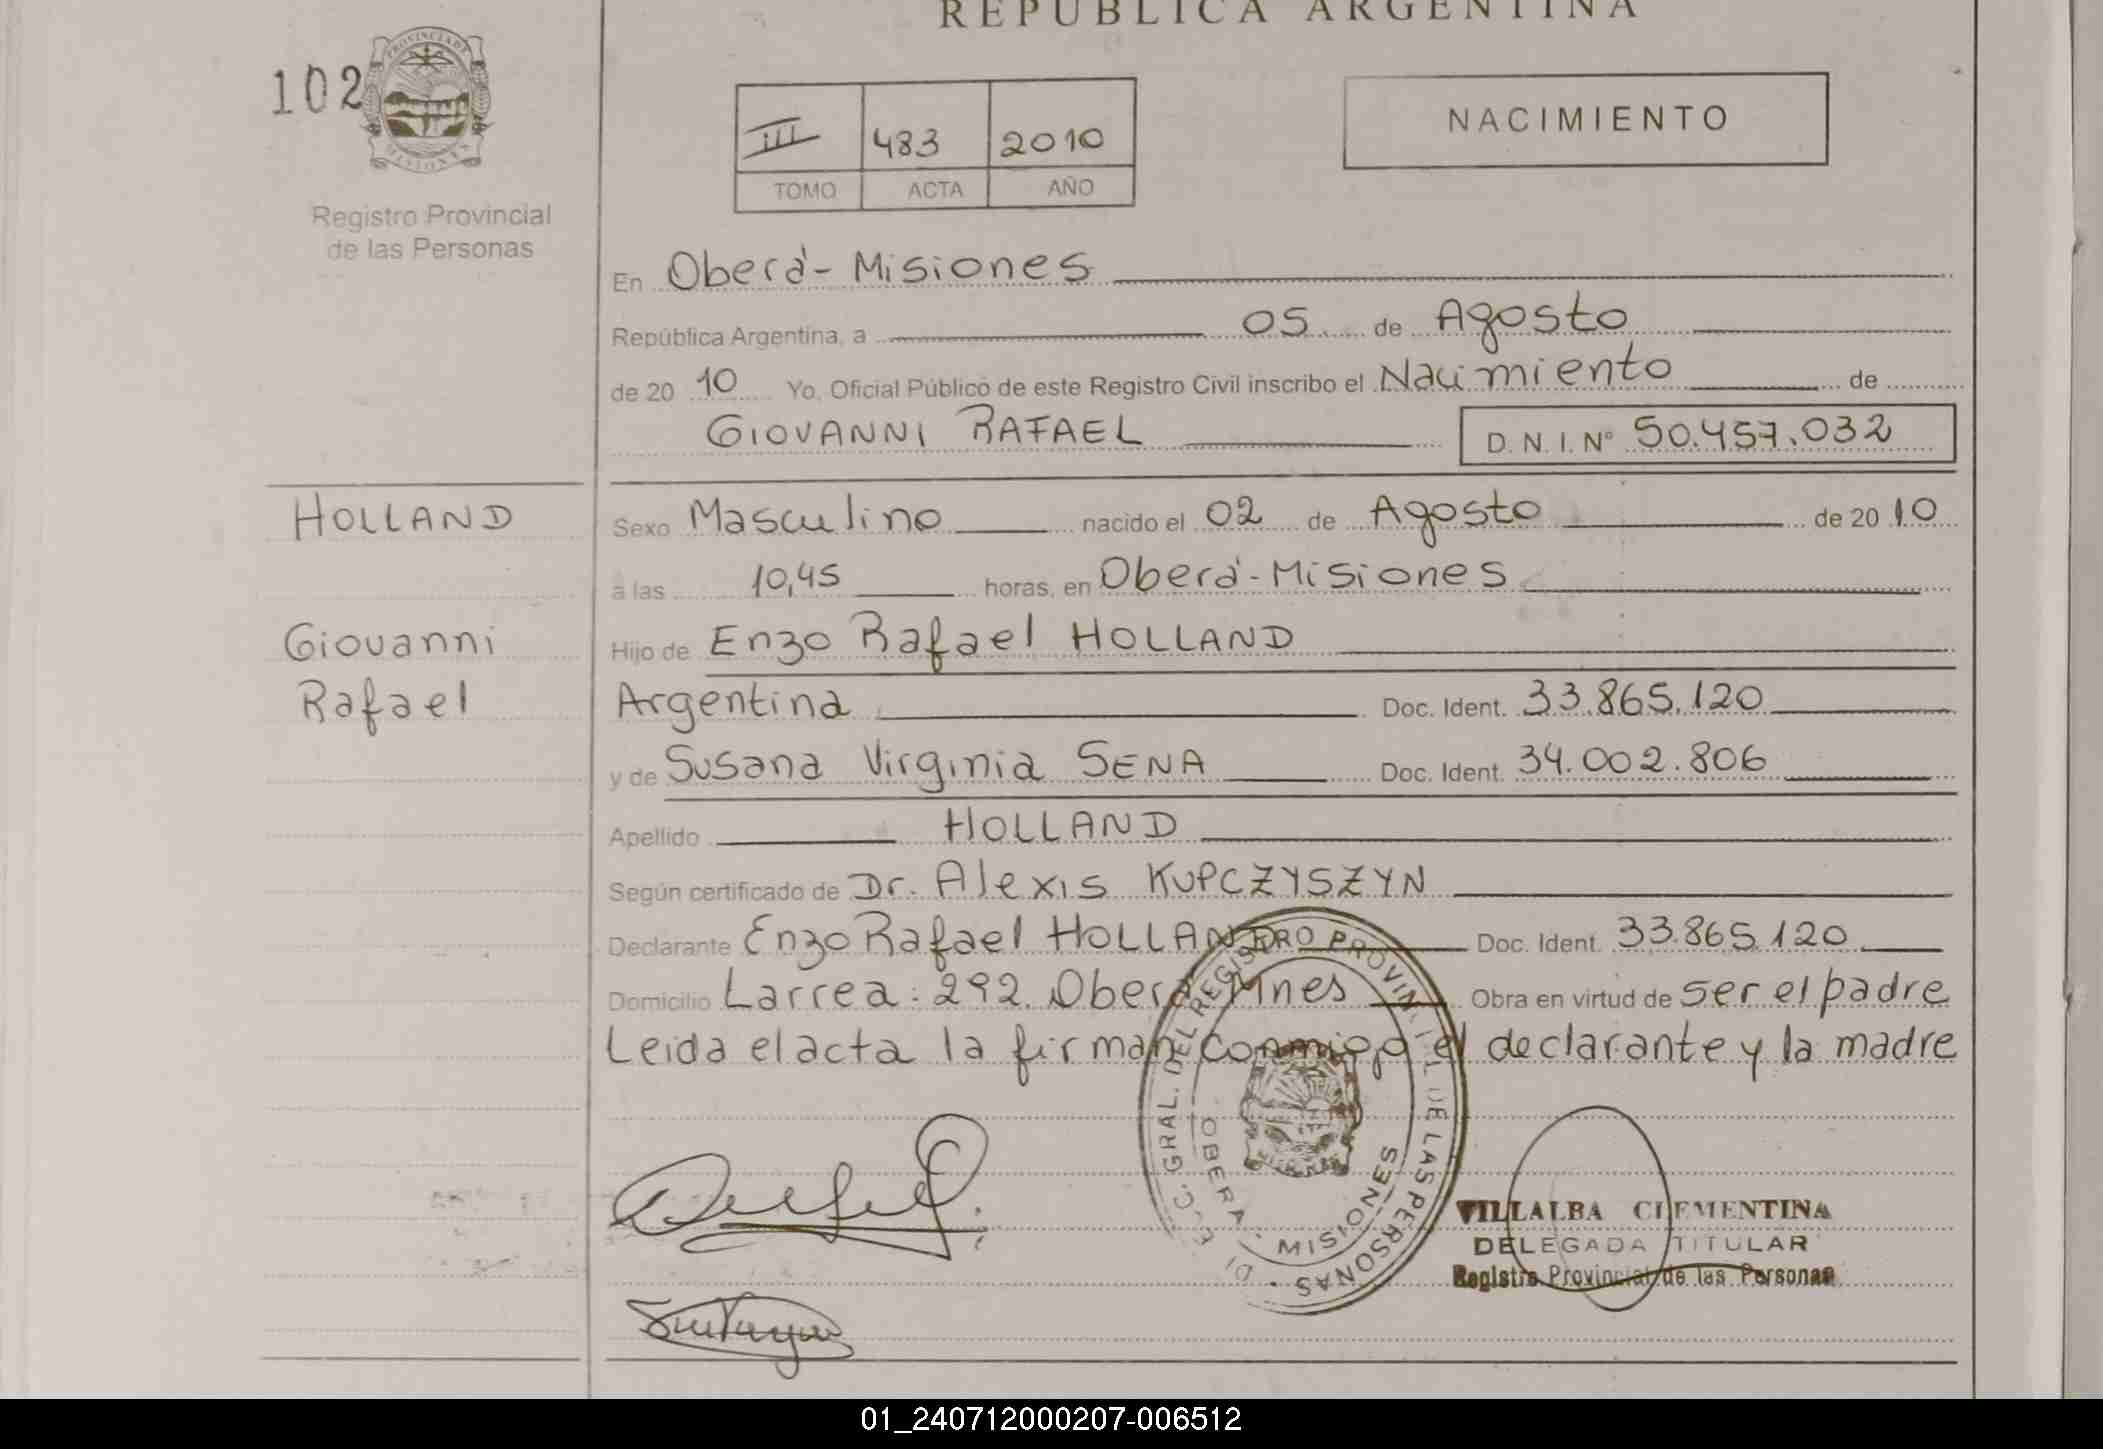 REPUBLICA ARGENTINA
102
PROVINCIA DE
MISIONES
Registro Provincial
de las Personas
III 483 2010
TOMO ACTA AÑO
NACIMIENTO
En Oberá - Misiones
República Argentina, a 05 de Agosto
de 20 10 Yo, Oficial Público de este Registro Civil inscribo el Nacimiento de
GIOVANNI RAFAEL D. N. I. Nº 50.457.032
HOLLAND
Giovanni
Rafael
Sexo Masculino nacido el 02 de Agosto de 20 10
a las 10,45 horas, en Oberá - Misiones
Hijo de Enzo Rafael HOLLAND
Argentina Doc. Ident. 33.865.120
y de Susana Virginia SENA Doc. Ident. 34.002.806
Apellido HOLLAND
Según certificado de Dr. Alexis KUPCZYSZYN
Declarante Enzo Rafael HOLLAND Doc. Ident. 33.865.120
Domicilio Larrea: 292. Oberá Mnes Obra en virtud de ser el padre
Leida el acta la firman conmigo el declarante y la madre
GRAL. DEL REGISTRO PROVINCIAL DE LAS PERSONAS
OBERA - MISIONES
VILLALBA CLEMENTINA
DELEGADA TITULAR
Registro Provincial de las Personas
01_240712000207-006512